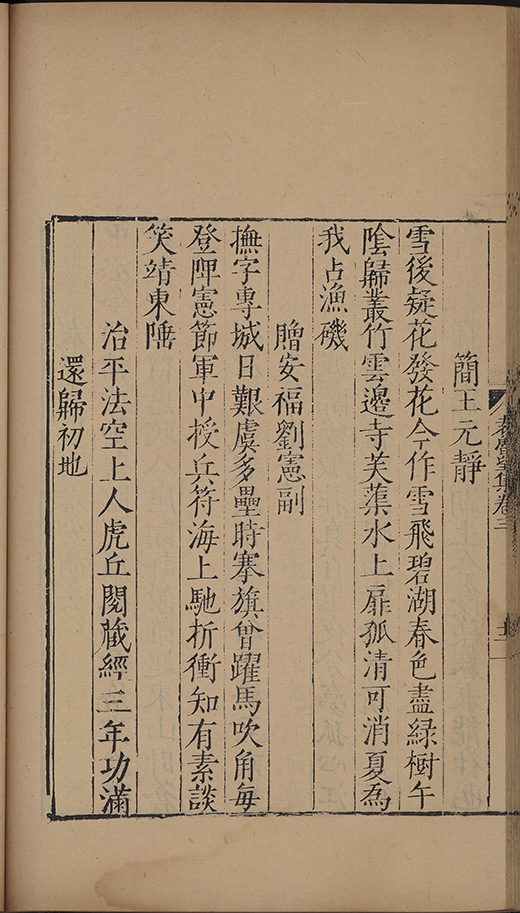 簡王元靜
雪後疑花發花今作雪飛碧湖春色盡綠樹午
陰歸叢竹雲邊寺芙蕖水上扉孤清可消夏為
我占漁磯
贈安福劉憲副
撫字專城日艱虞多壘時搴旗曾躍馬吹角每
登陴憲節軍中授兵符海上馳折衝知有素談
笑靖東陲
治平法空上人虎丘閱藏經三年功滿
還歸初地
集卷三